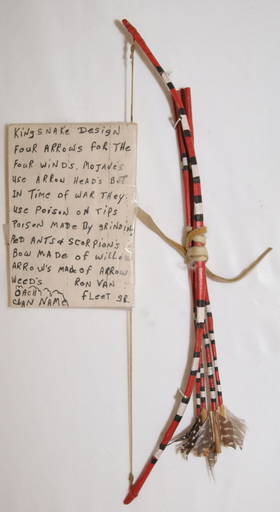 KINGSNAKE DESIGN
FOUR ARROWS FOR THE
FOUR WIND'S. MOJAVE'S
USE ARROW HEAD'S BUT
IN TIME OF WAR THEY
USE POISON ON TIPS
POISON MADE BY GRINDING
RED ANTS & SCORPION'S
BOW MADE OF WILLOW
ARROW'S MADE OF ARROW
WEED'S RON VAN
OACH FLEET SR.
CLAN NAME